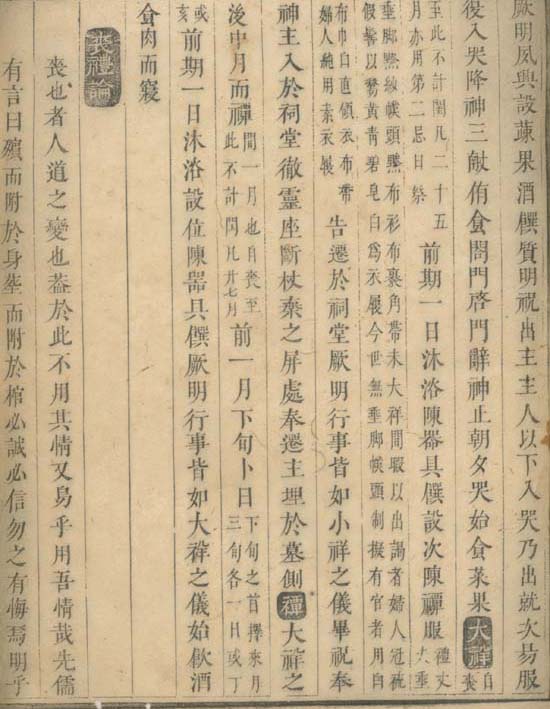 厥明夙興設蔬果酒饌質明祝出主主人以下入哭乃出就次易服
復入哭降神三獻侑食闔門啓門辭神止朝夕哭始食菜果大祥自喪
至此不計閏凡二十五月亦用第二忌日祭前期一日沐浴陳器具饌設次陳禫服禮丈夫
垂脚黪紗幞頭黪布衫布裹角帶未大祥間暇以出謁者婦人冠梳假髻以鵞黃青碧皂白爲衣履今世無垂脚幞頭制擬有官者用白
布巾白直領衣布帶婦人純用素衣履告遷於祠堂厥明行事皆如小祥之儀畢祝奉
神主入於祠堂徹靈座斷杖棄之屏處奉遷主埋於墓側禫大祥之
後中月而禫間一月也自喪至此不計閏凡廿七月前一月下旬卜日下旬之首擇來月三旬各一日或丁
或亥前期一日沐浴設位陳器具饌厥明行事皆如大祥之儀始飲酒
食肉而寢
喪禮論
喪也者人道之變也葢於此不用其情又曷乎用吾情哉先儒
有言曰殯而附於身塟而附於棺必誠必信勿之有悔焉明乎